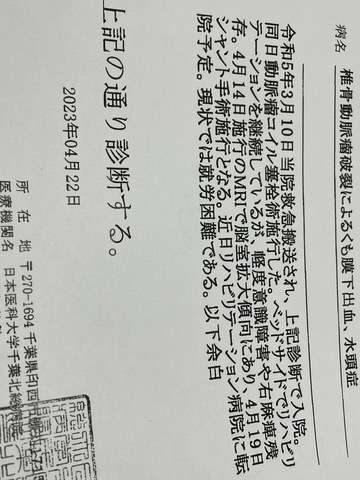 病名 椎骨動脈瘤破裂によるくも膜下出血、水頭症
令和5年3月10日当院救急搬送され、上記診断で入院。
同日動脈瘤コイル塞栓術施行した。ベッドサイドでリハビリ
テーションを継続しているが、軽度意識障害や右麻痺残
存。4月14日施行のMRIで脳室拡大傾向にあり、4月19日
シャント手術施行となる。近日リハビリテーション病院に転
院予定。現状では就労困難である。以下余白
上記の通り診断する。
2023年04月22日
所 在 地 〒270-1694 千葉県印西市
医療機関名 日本医科大学千葉北総